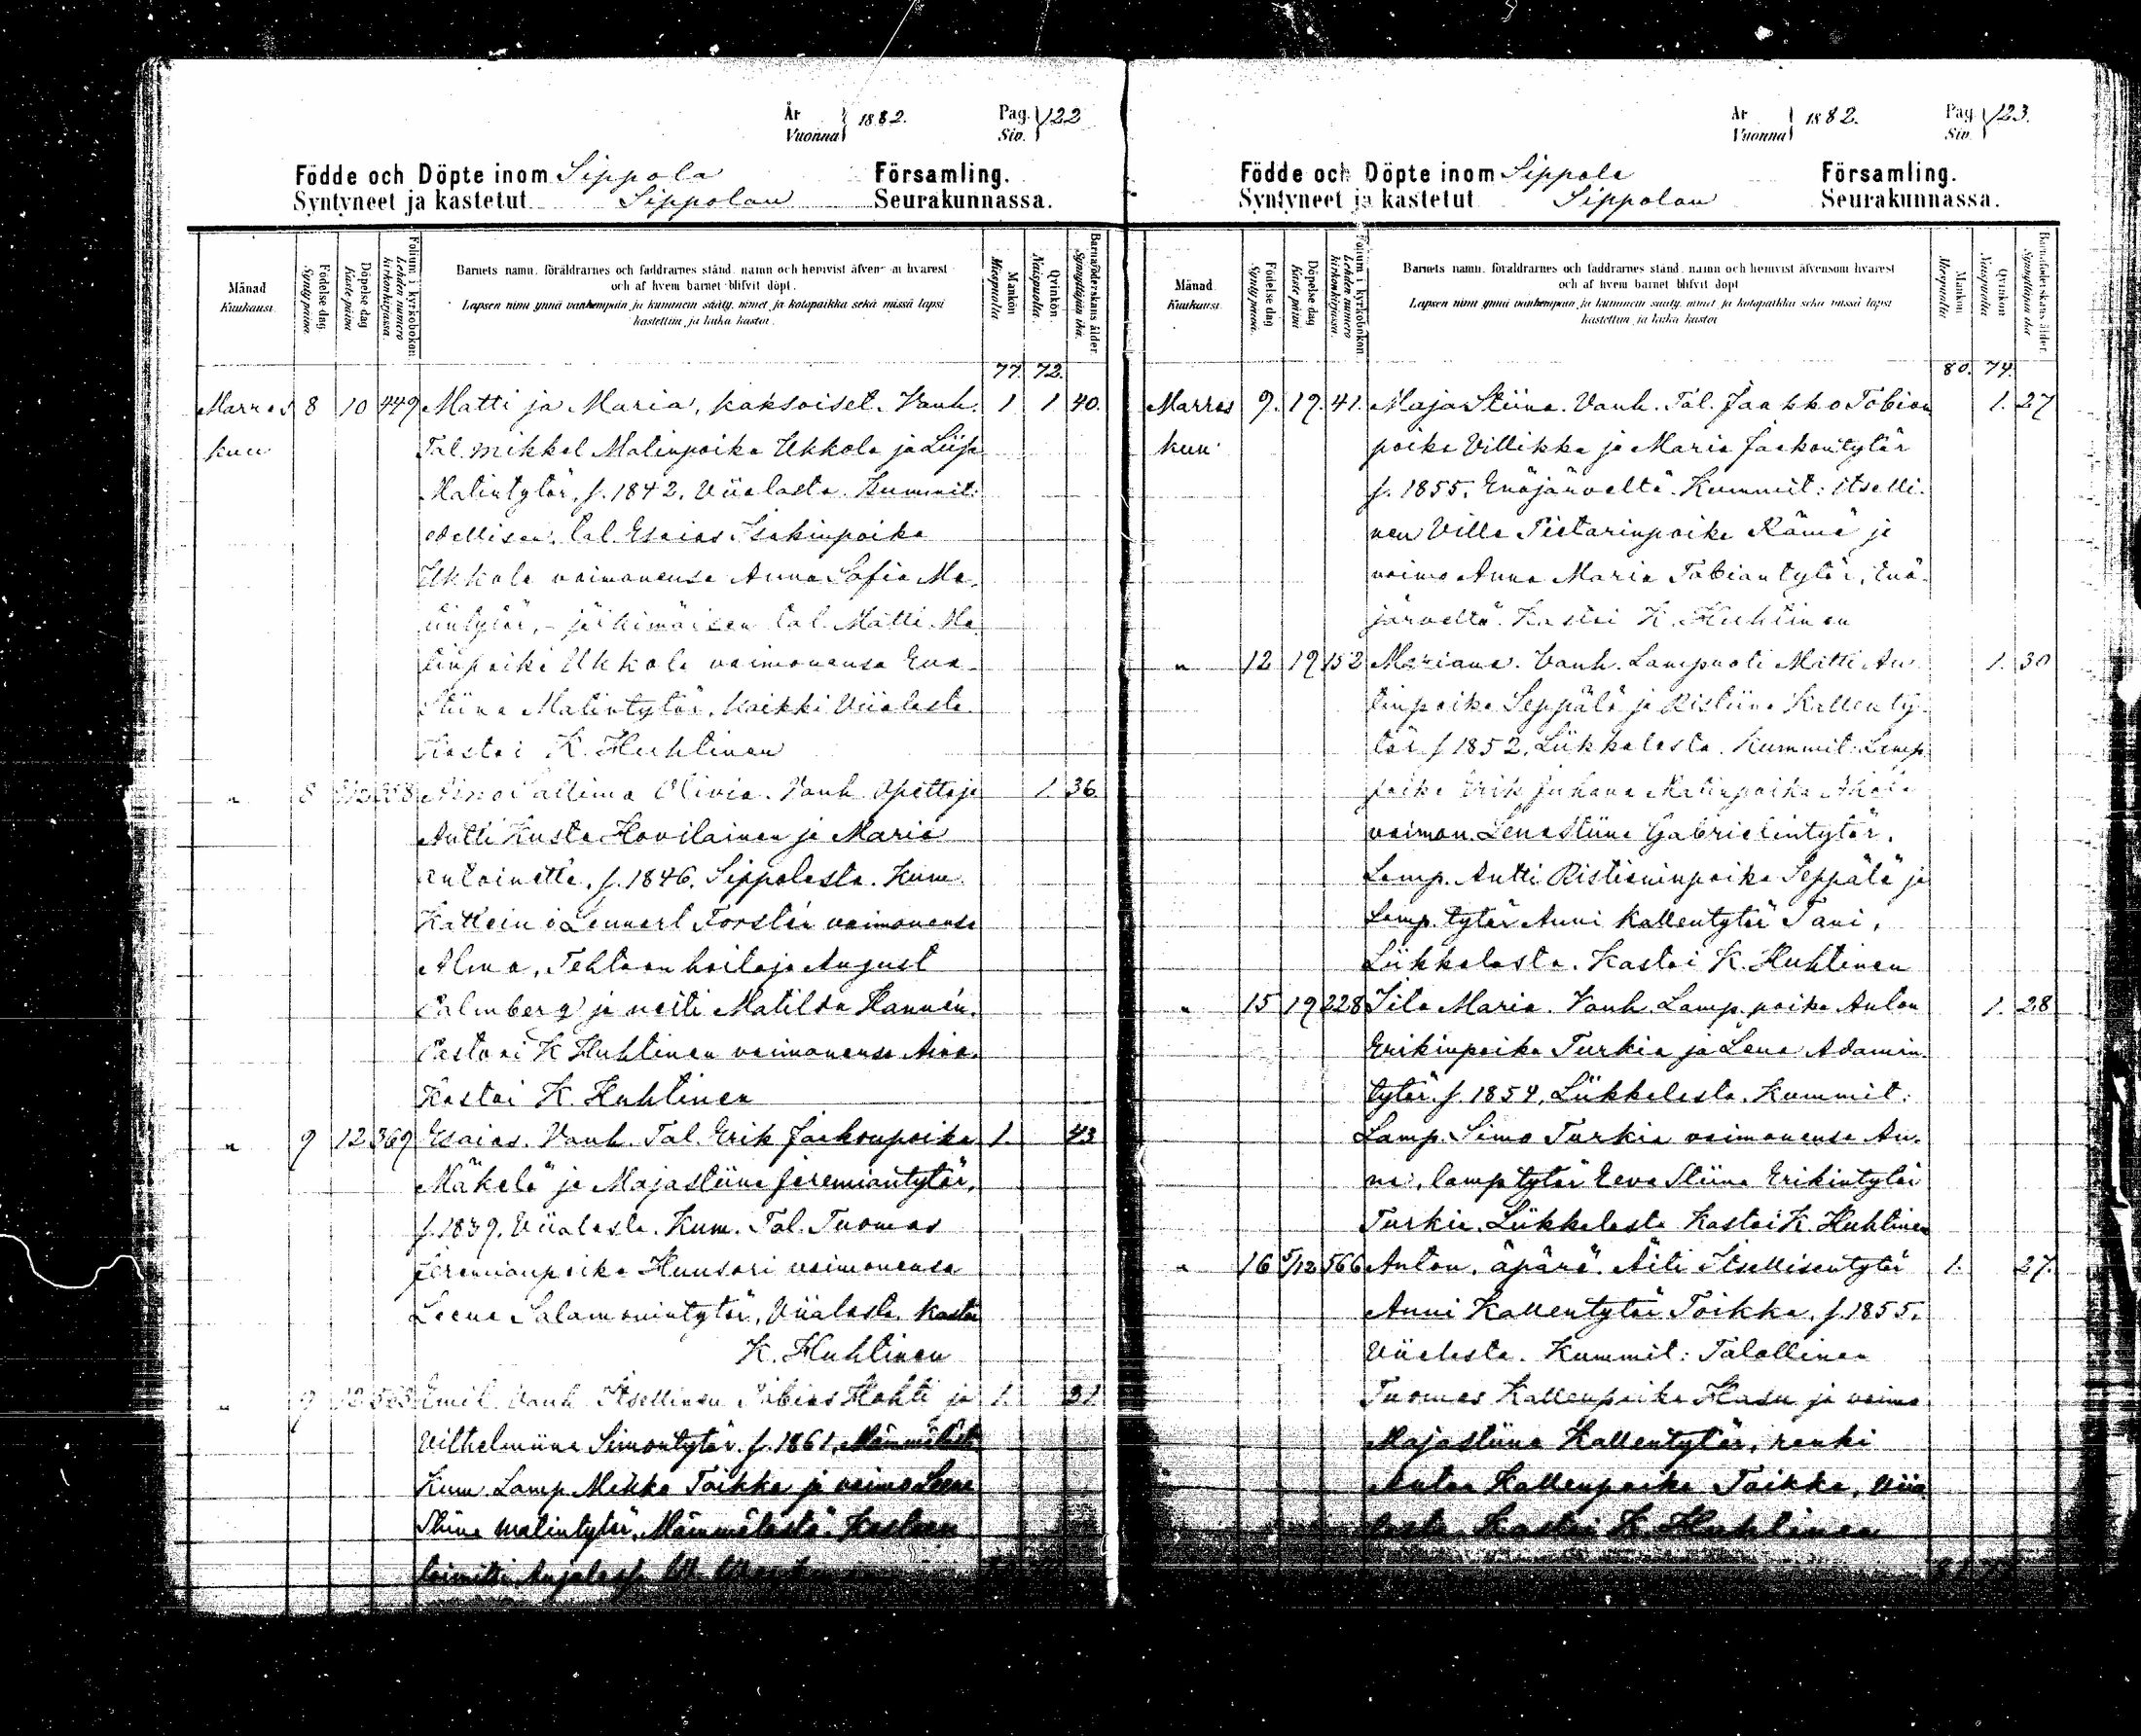 År Vuonna 1882. Pag. Siv. 122
Födde och Döpte inom Sippola Församling.
Syntyneet ja kastetut Sippolan Seurakunnassa.
Månad Kuukausi.
Födelse dag Syntypäivä.
Döpelse dag Kaste päivä
Folium i kyrkoboken. Lehden numero kirkonkirjassa.
Barnets namn, föräldrarnes och faddrarnes stånd, namn och hemvist äfvensom hvarest
och af hvem barnet blifvit döpt.
Lapsen nimi ynnä vanhempain ja kummein sääty, nimet ja kotopaikka sekä missä lapsi
kastettiin ja kuka kastoi.
Mankön Miespuolia
Qvinkön. Naispuolia.
Barnaföderskans ålder. Synnyttäjän ikä.
77. 72.
Marras 8 10 449 Matti ja Maria, kaksoiset. Vanh. 1 1 40.
kuu Tal. Mikkel Matinpoika Ukkola ja Liisa
Matintytär, s. 1842, Viialasta. Kummit:
edellisen, tal. Esaias Isakinpoika
Ukkola vaimonensa Anna Sofia Ma-
tintytär, - jälkimäisen tal. Matti Ma-
tinpoika Ukkola vaimonensa Eva
Stiina Matintytär, kaikki Viialasta.
Kastoi K. Huhtinen
" 8 Olivia. Vanh. Opettaja 1. 36.
Antti Kusta Hovilainen ja Maria
Antoinette, s. 1846, Sippolasta. Kum.
Lennart Forstén vaimonensa
Alma, Tehtaan hoitaja August
Palmberg ja neiti Matilda Hannén.
Pastori K Huhtinen vaimonensa Aina.
Kastoi K. Huhtinen
" 9 12 369 Esaias. Vanh. Tal. Erik Jaakonpoika 1. 43
Mäkelä ja Majastiina Jeremiantytär,
s. 1839. Viialasta. Kum. Tal. Tuomas
Jeremianpoika Huusari vaimonensa
Leena Salamonintytär, Viialasta. Kastoi
K. Huhtinen
" 9 12 Emil. Vanh. Itsellinen Tobias Hahti ja 1. 21
Vilhelmiina Simontytär. s. 1861, Mämmälästä
Kum. Lamp. Mikko Toikka ja vaimo Leena
Stiina Matintytär, Mämmälästä. Kasteen
toimitti Anjalassa
År Vuonna 1882. Pag. Siv. 123.
Födde och Döpte inom Sippola Församling.
Syntyneet ja kastetut Sippolan Seurakunnassa.
Månad Kuukausi.
Födelse dag Synty päivä.
Döpelse dag Kaste päivä
Folium i kyrkoboken. Lehden numero kirkonkirjassa.
Barnets namn, föräldrarnes och faddrarnes stånd, namn och hemvist äfvensom hvarest
och af hvem barnet blifvit döpt
Lapsen nimi ynnä vanhempain ja kummein sääty, nimet ja kotopaikka sekä missä lapsi
kastettiin ja kuka kastoi
Mankön. Miespuolia
Qvinkön Naispuolia
Barnaföderskans ålder. Synnyttäjän ikä
80. 74.
Marras 9. 19. 41. Maja Stiina. Vanh. Tal. Jaakko Tobian 1. 27
kuu poika Villikka ja Maria Jaakontytär
s. 1855, Enäjärveltä. Kummit: itselli-
nen Ville Pietarinpoika Rämä ja
vaimo Anna Maria Tobiantytär, Enä-
järveltä. Kastoi K. Huhtinen
" 12 19 152 Mariana. Vanh. Lampuoti Matti An- 1. 30
tinpoika Seppälä ja Ristiina Kallenty-
tär s 1852, Liikkalasta. Kummit: Lamp.
poika Erik Juhana Matinpoika
vaimon. Lenastiina Gabrielintytär,
Lamp. Antti Ristianinpoika Seppälä ja
Lamp. tytär Anni Kallentytär Tani,
Liikkalasta. Kastoi K. Huhtinen
" 15 19 228 Iita Maria. Vanh. Lamp. poika Anton 1. 28
Erikinpoika Turkia ja Lena Adamin-
tytär. s. 1854, Liikkalasta. Kummit:
Lamp. Simo Turkia vaimonensa An-
ni, lamp tytär Eeva Stiina Erikintytär
Turkia. Liikkalasta Kastoi K. Huhtinen
" 16 5/12 566 Anton, äpärä. Äiti Itsellisentytär 1. 27.
Anni Kallentytär Toikka, s. 1855.
Viialasta. Kummit: Talollinen
Tuomas Kallenpoika Hasu ja vaimo
Majastiina Kallentytär, renki
Anton Kallenpoika Toikka, Viia-
lasta. Kastoi K. Huhtinen